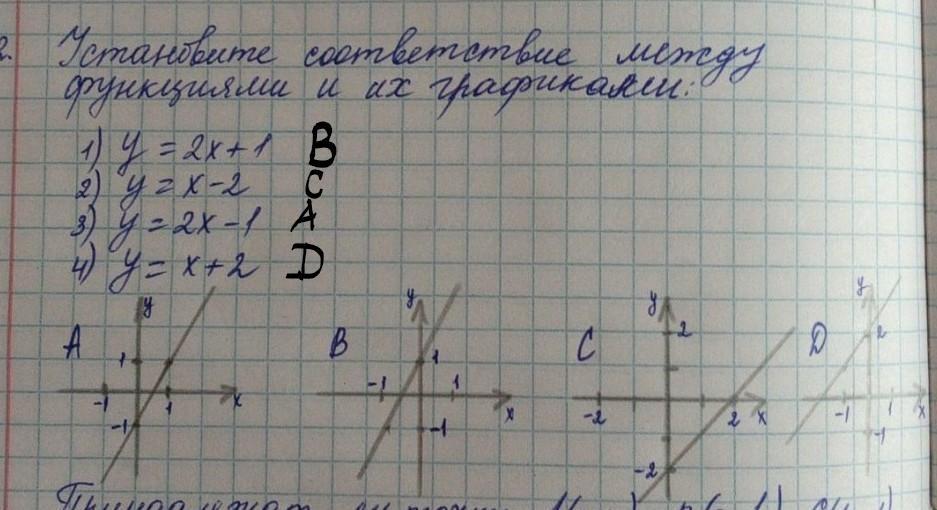 2. Установите соответствие между
функциями и их графиками:
1) y = 2x+1 B
2) y = x-2 C
3) y = 2x-1 A
4) y = x+2 D
A y 1 -1 1 x -1
B y 1 -1 1 x -1
C y 2 -2 2 x -2
D y 2 -1 1 x -1